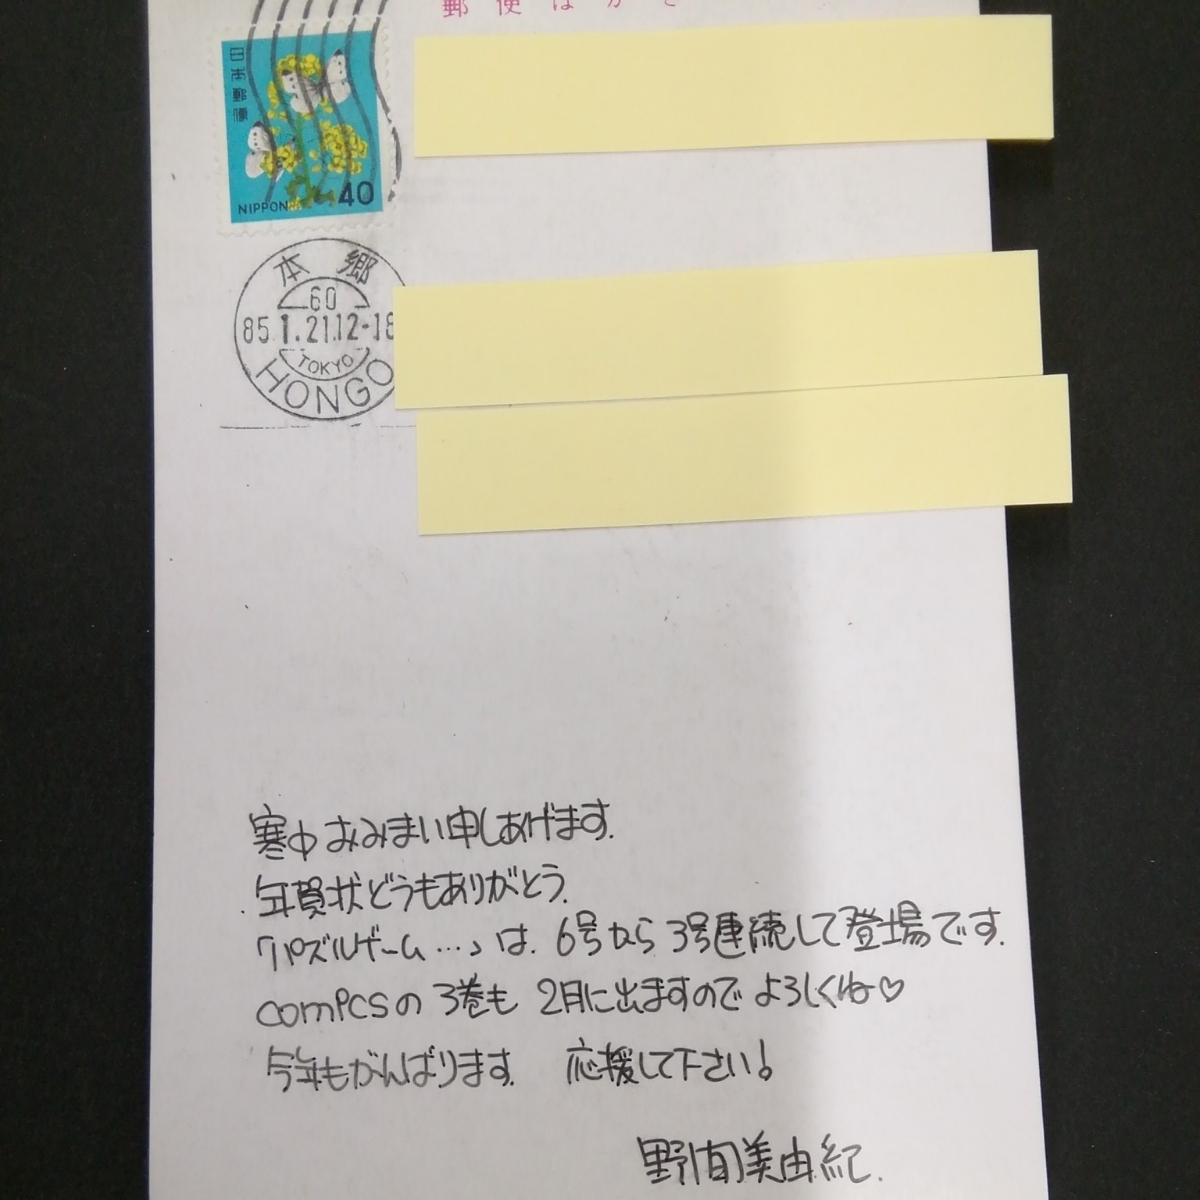 郵便はがき
日本郵便
NIPPON
40
本郷
60
85.1.21.12-18
TOKYO
HONGO
寒中おみまい申しあげます.
年賀状どうもありがとう.
「パズルゲーム…」は. 6号から 3号連続して登場です.
comicsの 3巻も 2月に出ますのでよろしくね♡
今年もがんばります. 応援して下さい!
野間美由紀.